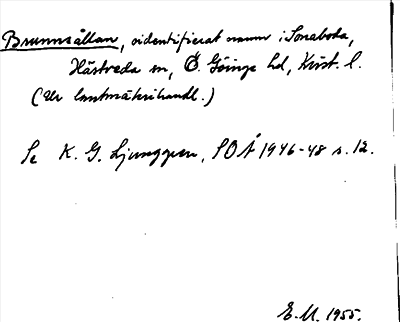 Brunnsållan, oidentifierat namn i Sonaboda,
Hästveda sn, Ö. Göinge hd, Krist. l.
(Ur lantmäterihandl.)
Se K. G. Ljunggren, SOÅ 1946-48 s. 12.
E. M. 1955.